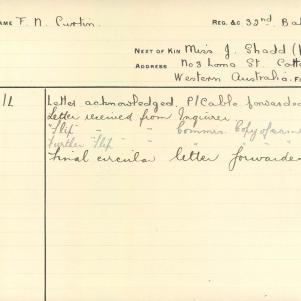 NAME F. N. Curtin. REG. &C 32nd. Bat
NEXT OF KIN Miss J. Shadd (
ADDRESS No 3 Lona St. Cott
Western Australia. F
/L Letter acknowledged. P/Cable forwarded
Letter received from Inquirer
"Flip" " " Commrs. Copy of same
Further "Flip" "
Final circular letter forwarde